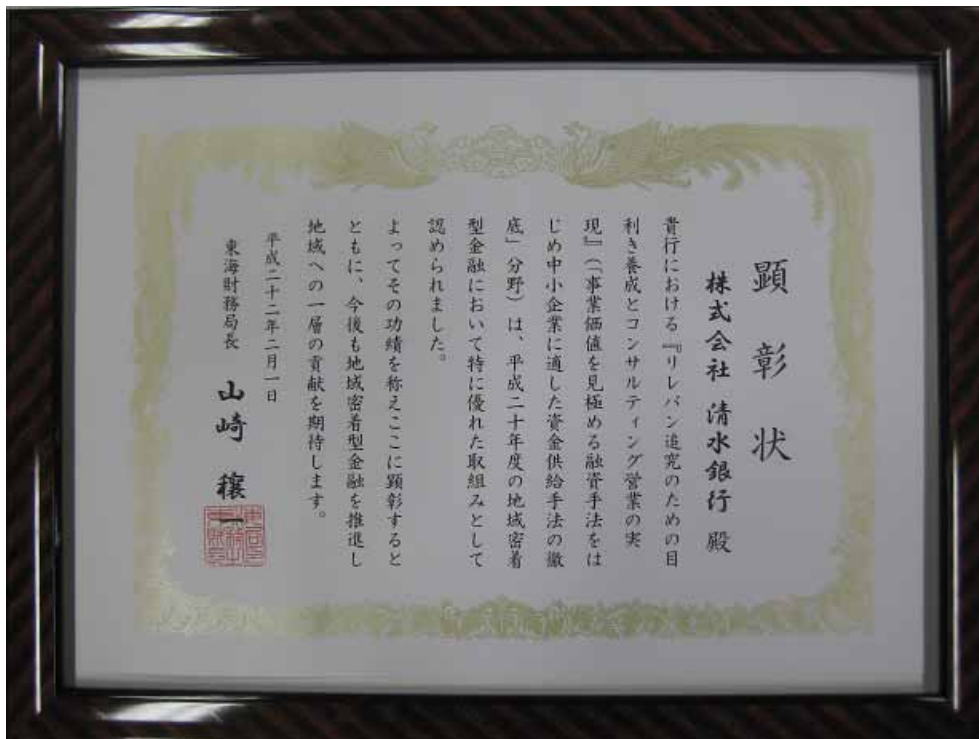 顕彰状
株式会社 清水銀行 殿
貴行における『リレバン追究のための目
利き養成とコンサルティング営業の実
現』(「事業価値を見極める融資手法をは
じめ中小企業に適した資金供給手法の徹
底」分野)は、平成二十年度の地域密着
型金融において特に優れた取組みとして
認められました。
よってその功績を称えここに顕彰すると
ともに、今後も地域密着型金融を推進し
地域への一層の貢献を期待します。
平成二十二年二月一日
東海財務局長 山崎 穰一